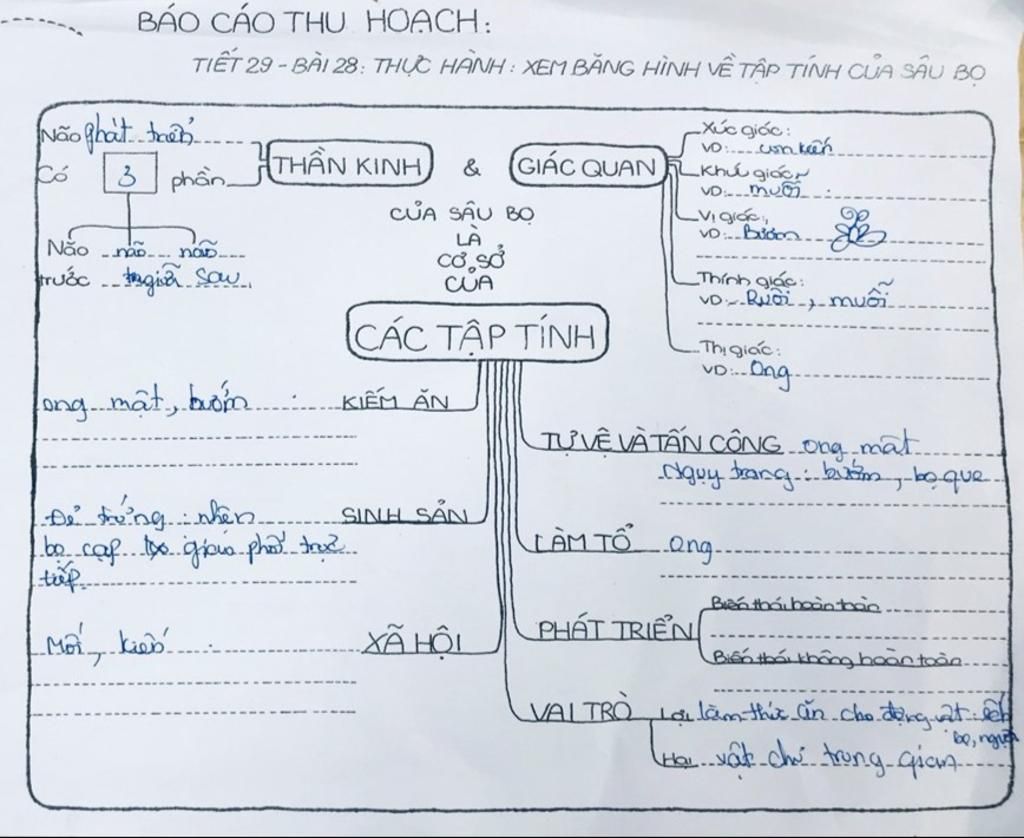 BÁO CÁO THU HOẠCH:
TIẾT 29 - BÀI 28: THỰC HÀNH: XEM BĂNG HÌNH VỀ TẬP TÍNH CỦA SÂU BỌ
Não phát triển
Có 3 phần
Não trước
não giữa
não sau
THẦN KINH & GIÁC QUAN
CỦA SÂU BỌ
LÀ
CƠ SỞ
CỦA
CÁC TẬP TÍNH
Xúc giác:
VD: con kiến
Khứu giác
VD: muỗi
Vị giác:
VD: Bướm
Thính giác:
VD: Ruồi, muỗi
Thị giác:
VD: Ong
ong mật, bướm KIẾM ĂN
Đẻ trứng: nhện SINH SẢN
bọ cạp
giao phối trực
tiếp
Mối, kiến XÃ HỘI
TỰ VỆ VÀ TẤN CÔNG ong mật
Ngụy trang: bướm, bọ que
LÀM TỔ ong
PHÁT TRIỂN
Biến thái hoàn toàn
Biến thái không hoàn toàn
VAI TRÒ
Lợi làm thức ăn cho động vật: ếch
bọ, người
Hại vật chủ trung gian